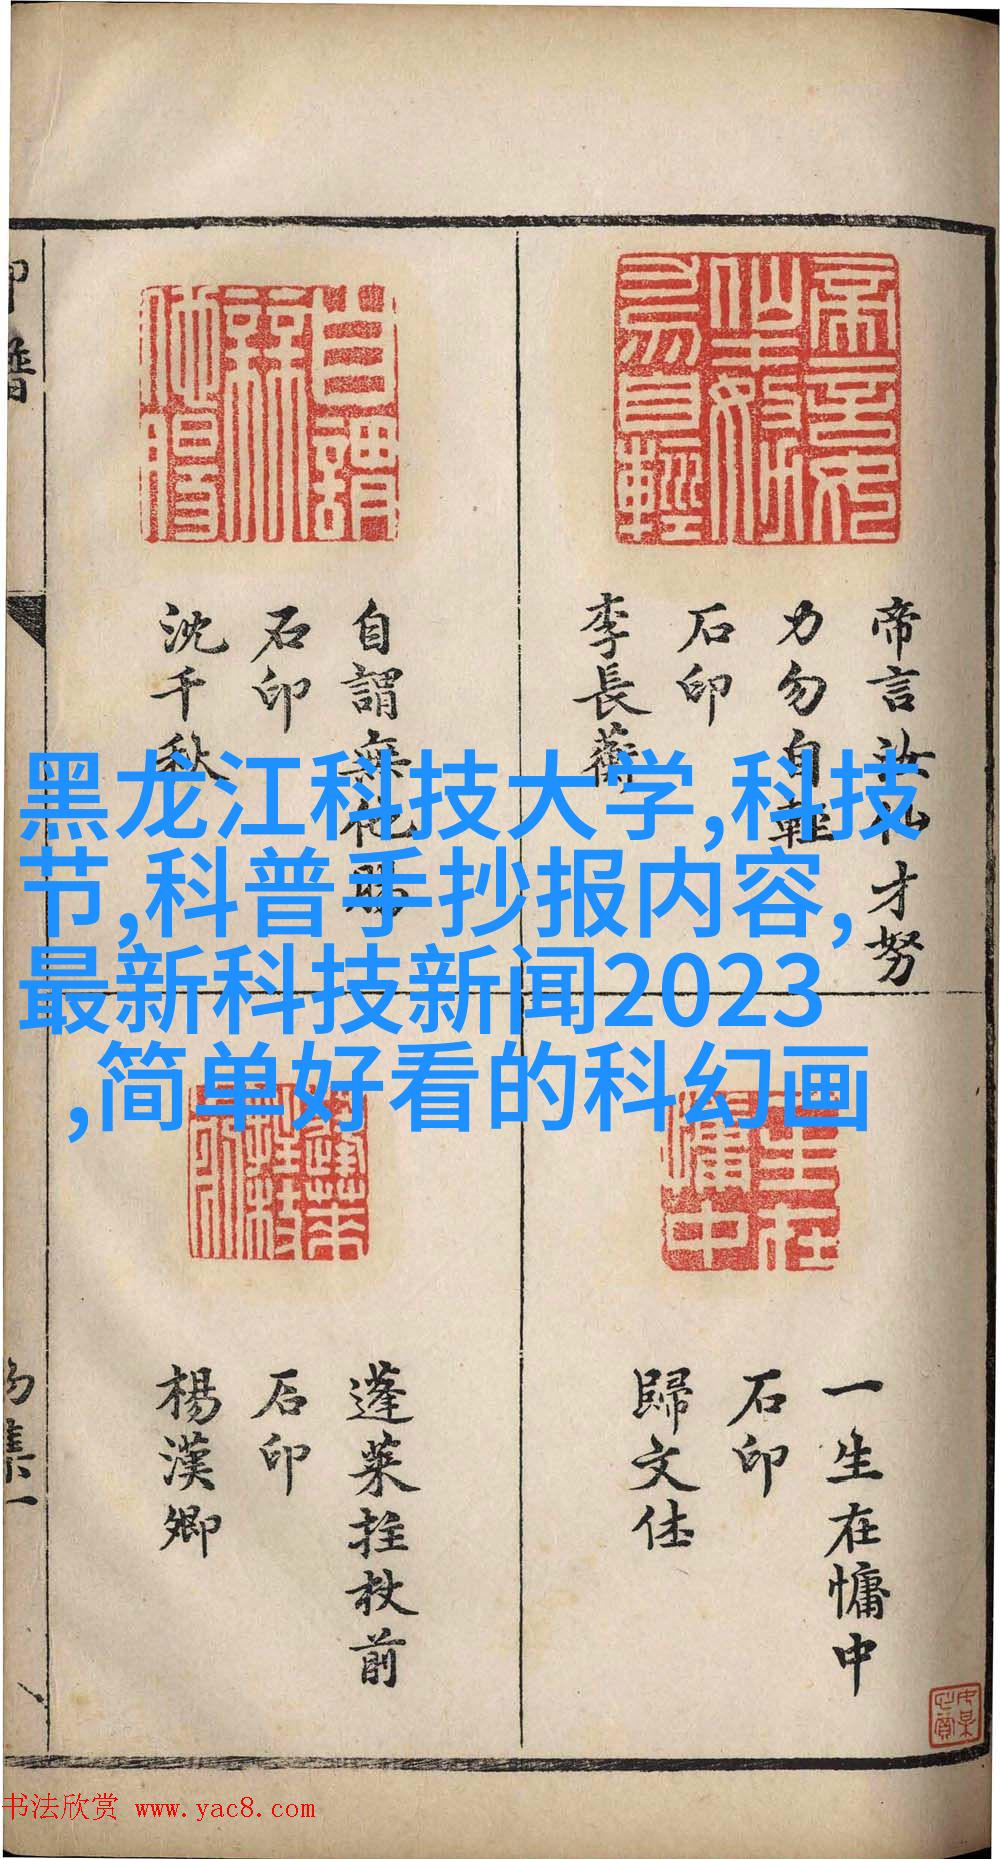 帝言汝仙才努
力勿自輕
石印
李長蘅
自謂無他腸
石印
沈千秋
黑龙江科技大学,科技
节,科普手抄报内容,
最新科技新闻2023
,简单好看的科幻画
一生在慵中
石印
歸文休
蓬萊拄杖前
石印
楊漢卿
印譜
书法欣赏 www.yac8.com